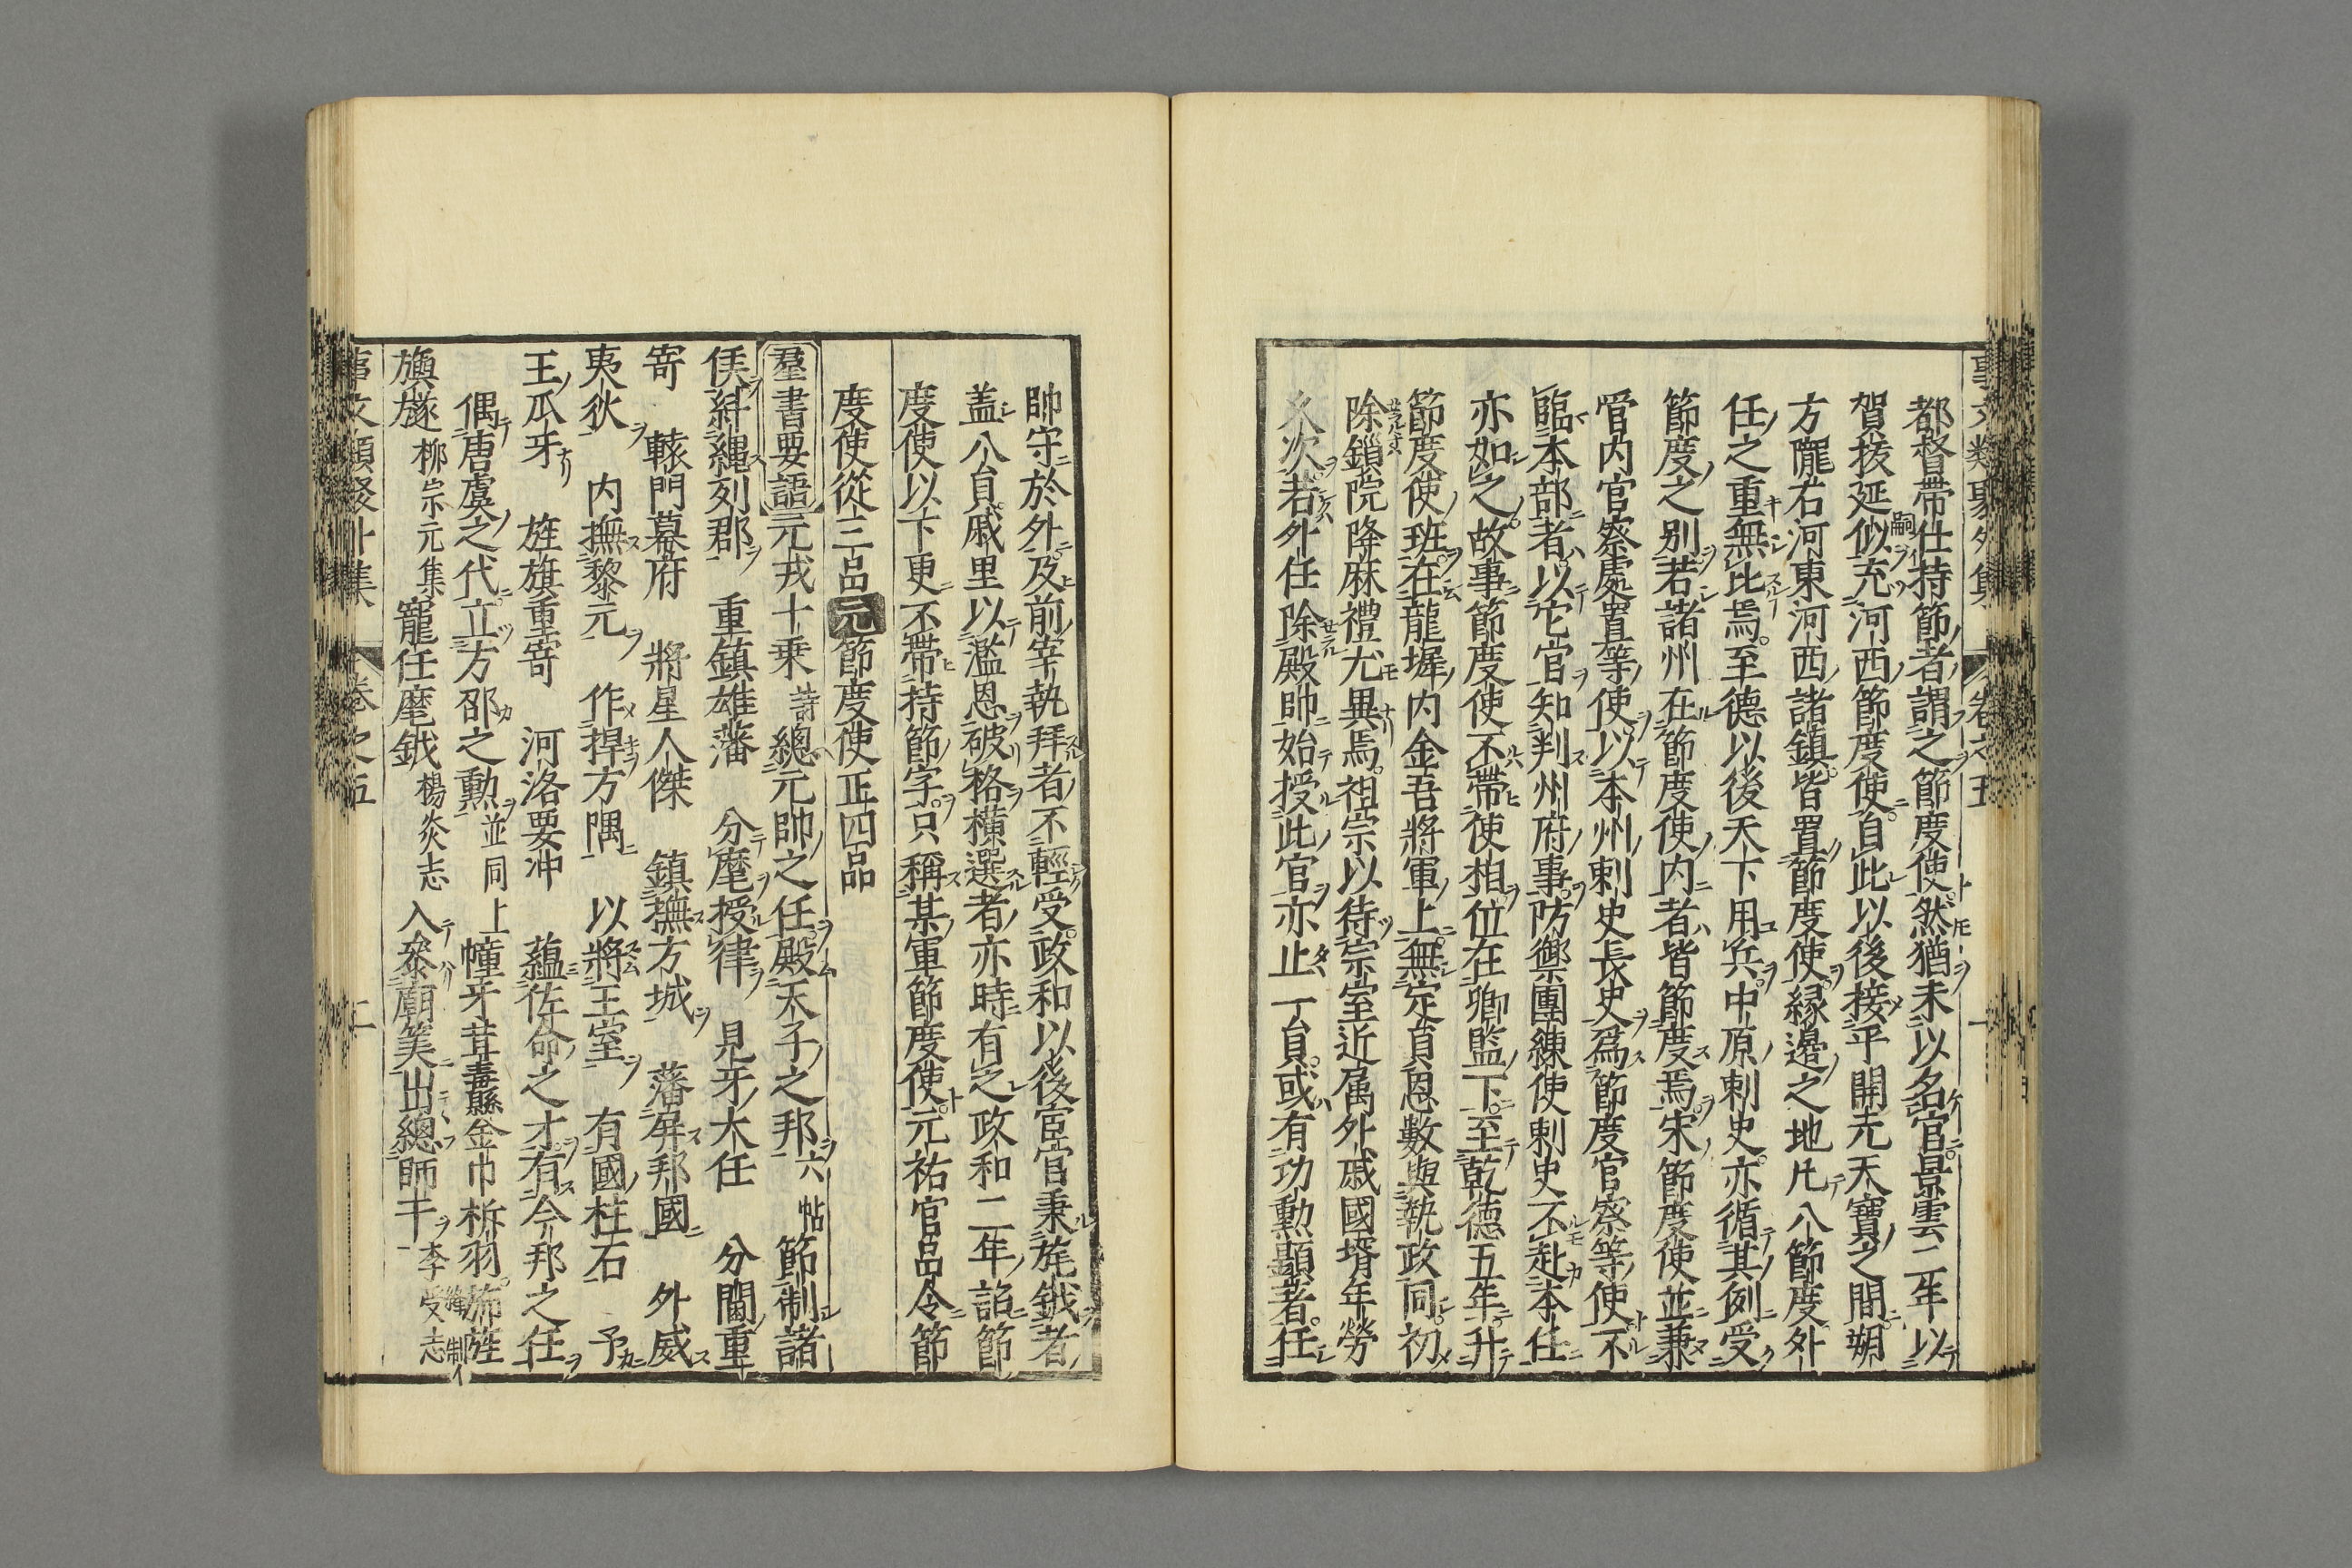 都督帶仕持節者謂之節度使然猶未以名官景雲二年以
賀拔延似充河西節度使自此以後接乎開元天寶之間朔
方隴右河東河西諸鎮皆置節度使緣邊之地凡八節度外
任之重無比焉至德以後天下用兵中原刺史亦循其例受
節度之别若諸州在節度使内者皆節度焉宋節度使並兼
管内官察處置等使以本州刺史長史爲節度官察等使不
臨本部者以它官知判州府事防禦團練使刺史不赴本任
亦如之故事節度使不帶使相位在卿監下至乾德五年升
節度使班在龍墀内金吾將軍上無定員恩數與執政同初
除鎖院降麻禮尤異焉祖宗以待宗室近属外戚國壻年勞
久次若外任除殿帥始授此官亦止一員或有功勲顯著任
帥守於外及前宰執拜者不輕受政和以後宦官秉旄鉞者
盖八員戚里以濫恩破格橫選者亦時有之政和二年詔節
度使以下更不帶持節字只稱某軍節度使元祐官品令節
度使從三品元節度使正四品
羣書要語元戎十乗詩總元帥之任殿天子之邦六帖節制諸
侯糾繩列郡 重鎮雄藩 分麾授律 見牙大任 分閫重
寄 轅門幕府 將星人傑 鎮撫方城 藩屏邦國 外威
夷狄 内撫黎元 作捍方隅 以將王室 有國柱石 予
王爪牙 旌旗重寄 河洛要冲 蘊佐命之才有今邦之任
偶唐虞之代立方邵之勲並同上幢牙茸纛縣金巾柝羽旆旌
旟旞柳宗元集寵任麾鉞楊炎志入叅廟筭出總師干李受志
事文類聚外集 卷之五 二